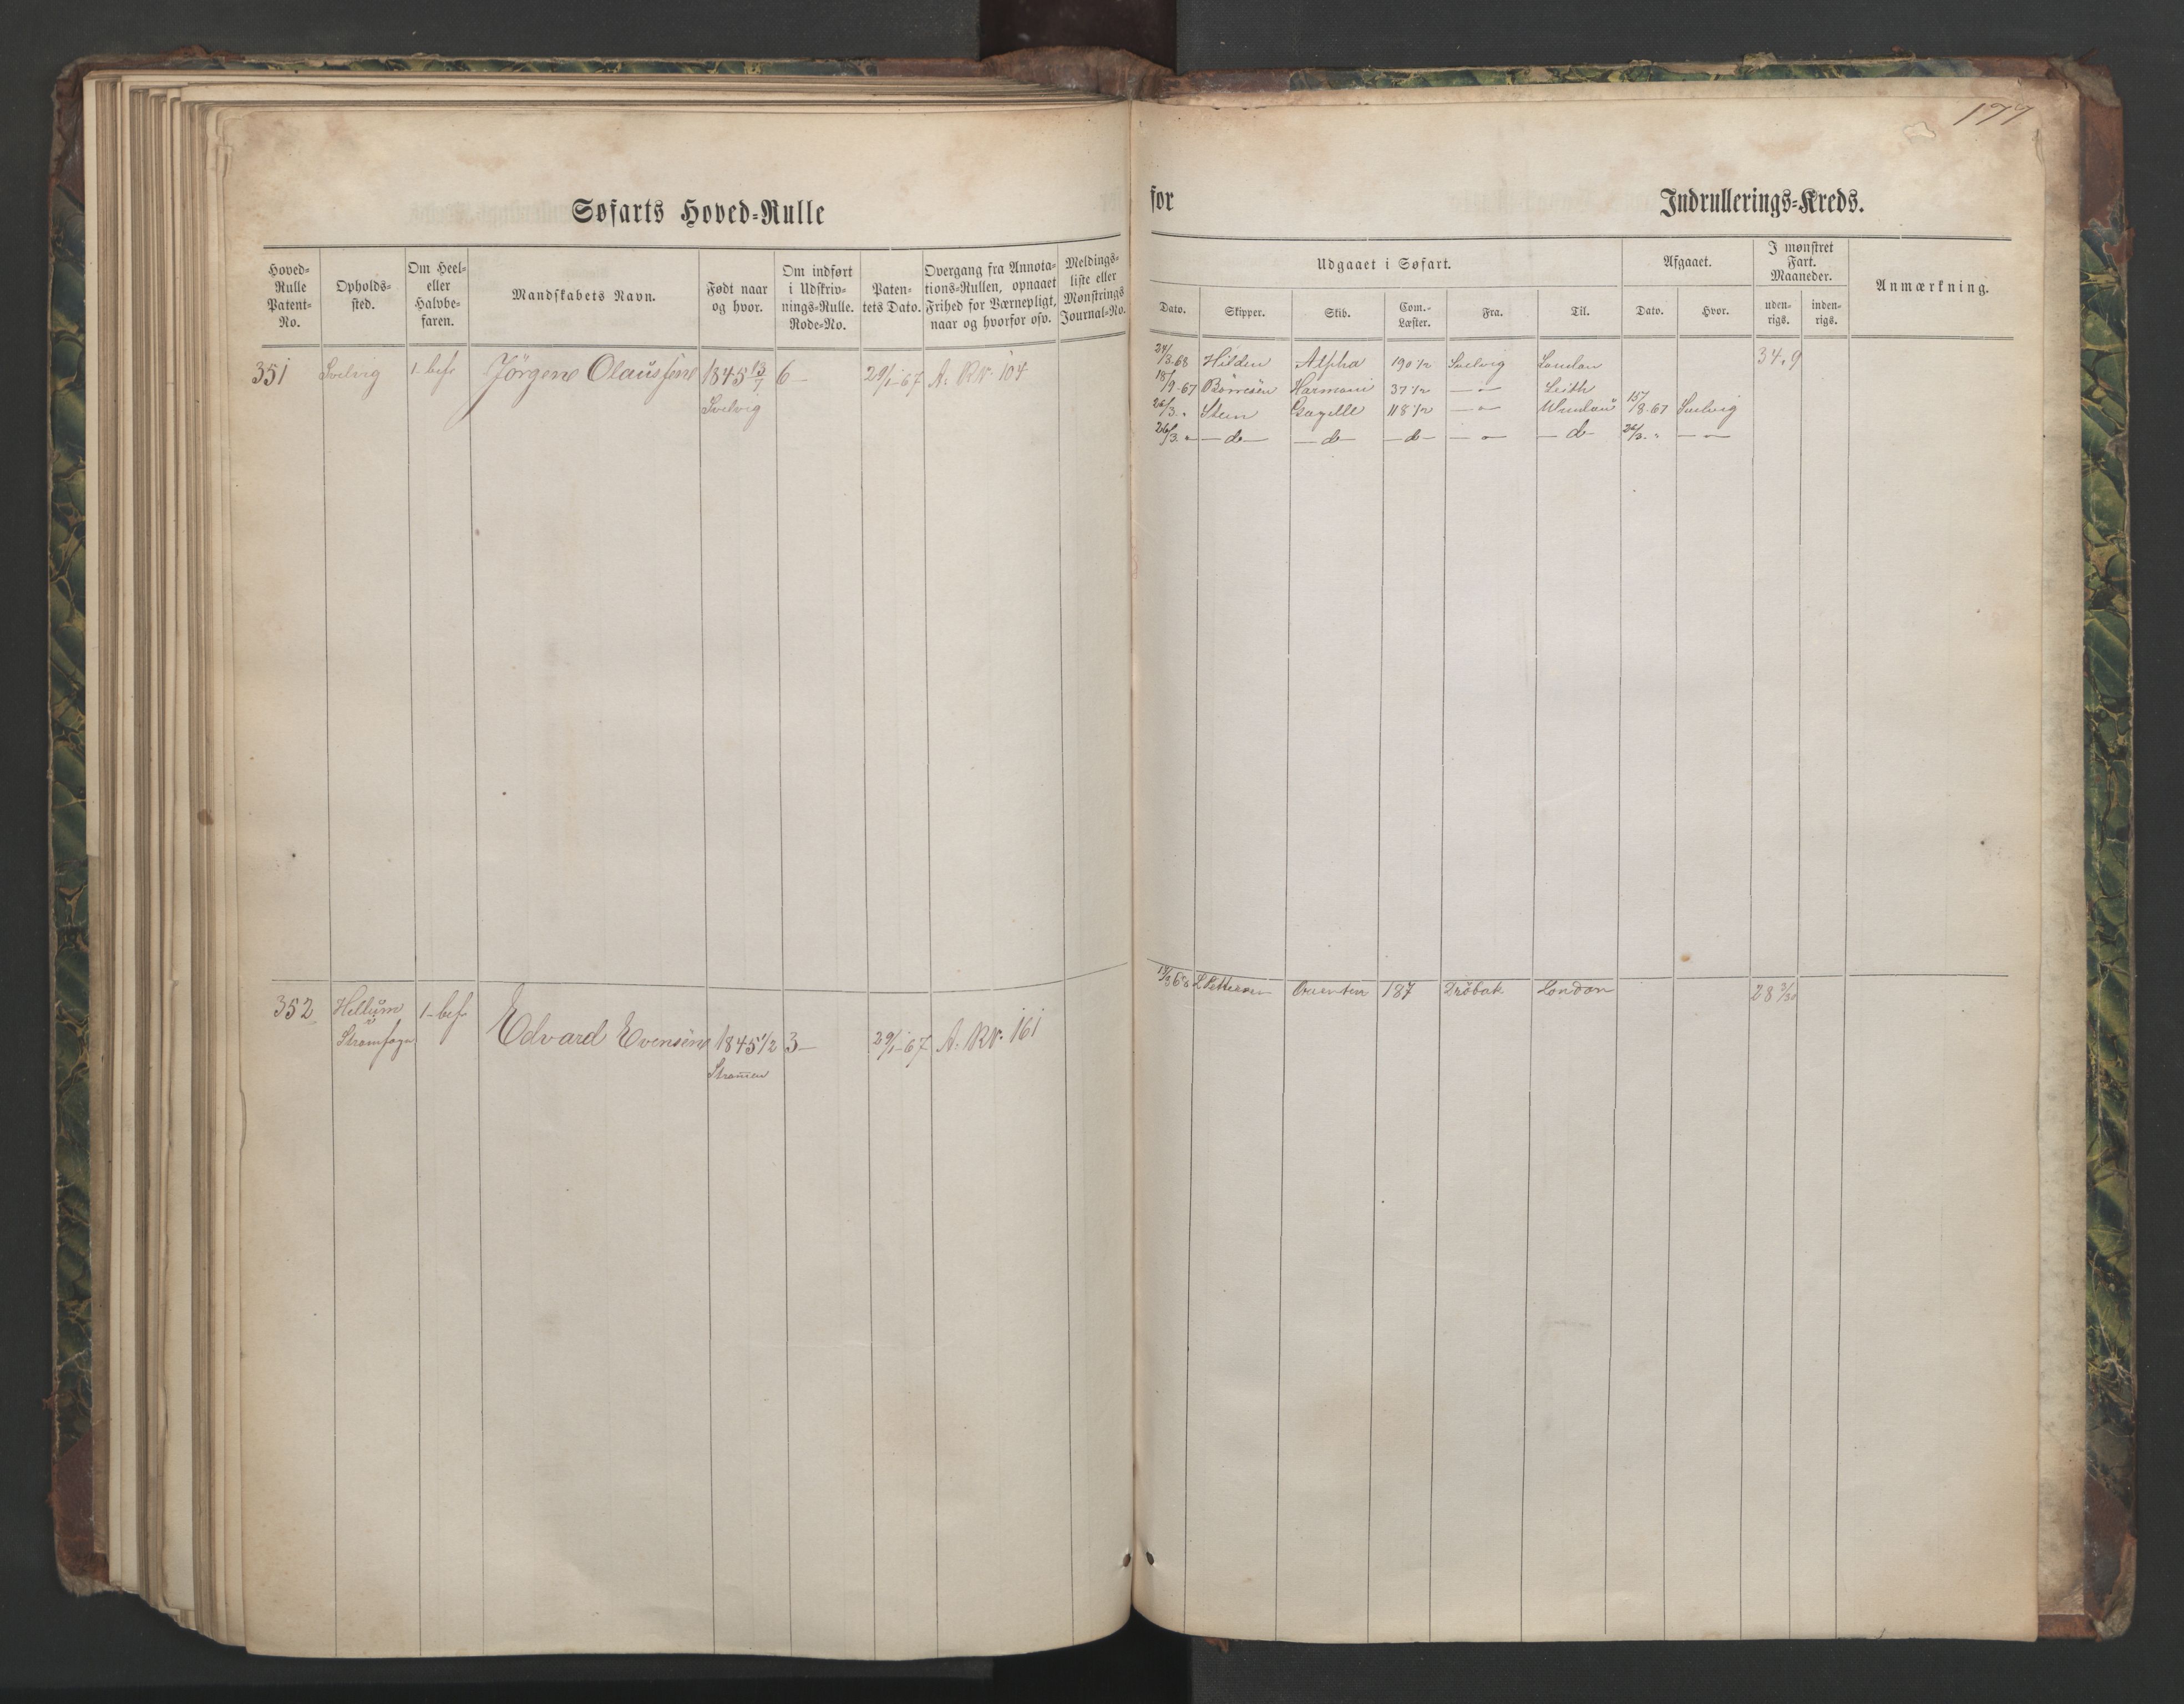 177
Søfarts Hoved-Rulle
for
Indrullerings-Kreds.
Hoved-Rulle Patent-No.
Opholds-sted.
Om Heel- eller Halvbe-faren.
Mandskabets Navn.
Født naar og hvor.
Om indført i Udskriv-nings-Rulle. Rode-No.
Paten-tets Dato.
Overgang fra Annota-tions-Rullen, opnaaet Frihed for Værnepligt, naar og hvorfor osv.
Meldings-liste eller Mønstrings Journal-No.
Udgaaet i Søfart.
Afgaaet.
I mønstret Fart. Maaneder.
Anmærkning.
Dato. Skipper. Skib. Com.-Læster. Fra. Til. Dato. Hvor. uden-rigs. inden-rigs.
351 Svelvig 1-bef Jörgen Olaussen 1845 13/7 6- 29/1-67 A. RN. 104
Svelvig
24/3.68 Hilden Alpha 190 1/2 Svelvig London 34.9
18/9-67 Börresen Harmoni 37 1/2 — " — Leith
26/3. " Steen Gazelle 118 1/2 — " — 15/8-67 Svelvig
26/3. " — d — — d — — d — — " — — d — 26/3. " — " —
352 Hellum 1-bef Edvard Evensen 1845 1/2 3- 29/1-67 A. RN. 161
Strømmen
68 L Pettersen 187 Dröbak London 28 3/30